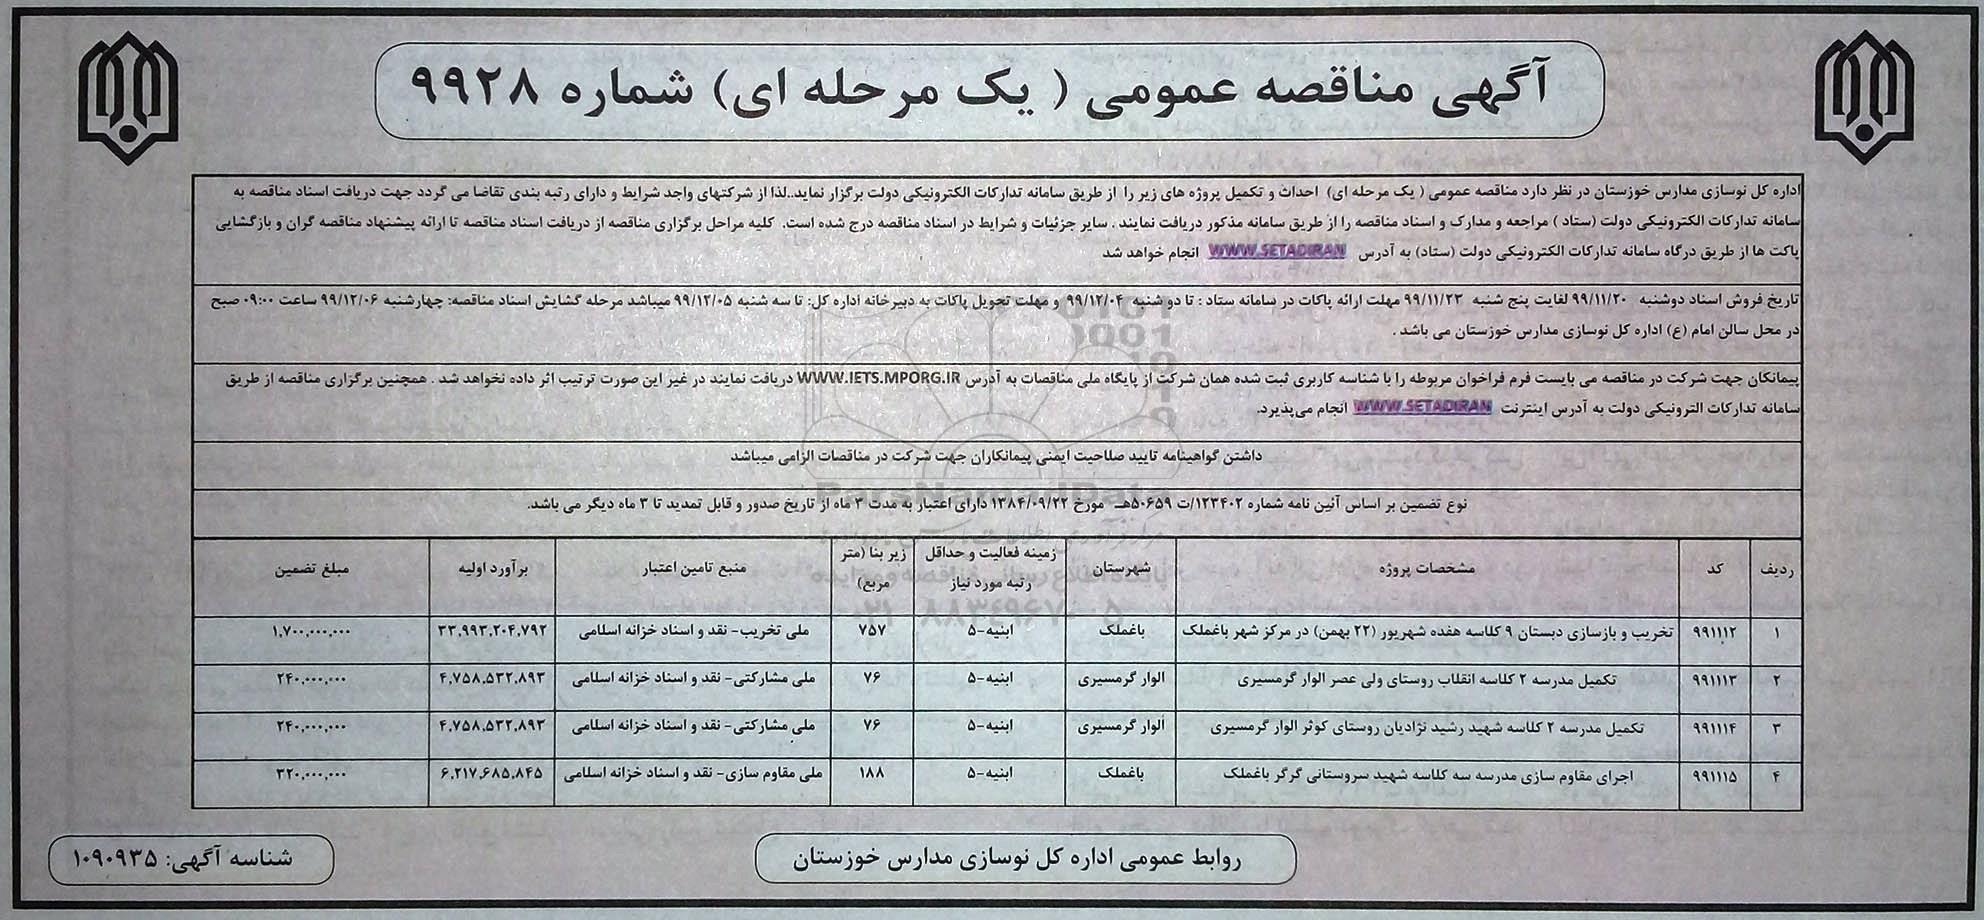 آگهی مناقصه عمومی ( یک مرحله ای) شماره ۹۹۲۸
اداره کل نوسازی مدارس خوزستان در نظر دارد مناقصه عمومی ( یک مرحله ای) احداث و تکمیل پروژه های زیر را از طریق سامانه تدارکات الکترونیکی دولت برگزار نماید..لذا از شرکتهای واجد شرایط و دارای رتبه بندی تقاضا می گردد جهت دریافت اسناد مناقصه به
سامانه تدارکات الکترونیکی دولت (ستاد ) مراجعه و مدارک و اسناد مناقصه را از طریق سامانه مذکور دریافت نمایند . سایر جزئیات و شرایط در اسناد مناقصه درج شده است. کلیه مراحل برگزاری مناقصه از دریافت اسناد مناقصه تا ارائه پیشنهاد مناقصه گران و بازگشایی
پاکت ها از طریق درگاه سامانه تدارکات الکترونیکی دولت (ستاد) به آدرس WWW.SETADIRAN انجام خواهد شد
تاریخ فروش اسناد دوشنبه ۹۹/۱۱/۲۰ لغایت پنج شنبه ۹۹/۱۱/۲۳ مهلت ارائه پاکات در سامانه ستاد : تا دو شنبه ۹۹/۱۲/۰۴ و مهلت تحویل پاکات به دبیرخانه اداره کل: تا سه شنبه ۹۹/۱۲/۰۵ میباشد مرحله گشایش اسناد مناقصه: چهارشنبه ۹۹/۱۲/۰۶ ساعت ۰۹:۰۰ صبح
در محل سالن امام (ع) اداره کل نوسازی مدارس خوزستان می باشد .
پیمانکان جهت شرکت در مناقصه می بایست فرم فراخوان مربوطه را با شناسه کاربری ثبت شده همان شرکت از پایگاه ملی مناقصات به آدرس WWW.IETS.MPORG.IR دریافت نمایند در غیر این صورت ترتیب اثر داده نخواهد شد . همچنین برگزاری مناقصه از طریق
سامانه تدارکات الترونیکی دولت به آدرس اینترنت WWW.SETADIRAN انجام می‌پذیرد.
داشتن گواهینامه تایید صلاحیت ایمنی پیمانکاران جهت شرکت در مناقصات الزامی میباشد
نوع تضمین بر اساس آئین نامه شماره ۱۲۳۴۰۲/ت ۵۰۶۵۹هـ مورخ ۱۳۸۴/۰۹/۲۲ دارای اعتبار به مدت ۳ ماه از تاریخ صدور و قابل تمدید تا ۳ ماه دیگر می باشد.
ردیف کد مشخصات پروژه شهرستان زمینه فعالیت و حداقل رتبه مورد نیاز زیر بنا (متر مربع) منبع تامین اعتبار برآورد اولیه مبلغ تضمین
۱ ۹۹۱۱۱۲ تخریب و بازسازی دبستان ۹ کلاسه هفده شهریور (۲۲ بهمن) در مرکز شهر باغملک باغملک ابنیه-۵ ۷۵۷ ملی تخریب- نقد و اسناد خزانه اسلامی ۳۳،۹۹۳،۲۰۴،۷۹۲ ۱،۷۰۰،۰۰۰،۰۰۰
۲ ۹۹۱۱۱۳ تکمیل مدرسه ۲ کلاسه انقلاب روستای ولی عصر الوار گرمسیری الوار گرمسیری ابنیه-۵ ۷۶ ملی مشارکتی- نقد و اسناد خزانه اسلامی ۴،۷۵۸،۵۳۲،۸۹۳ ۲۴۰،۰۰۰،۰۰۰
۳ ۹۹۱۱۱۴ تکمیل مدرسه ۲ کلاسه شهید رشید نژادیان روستای کوثر الوار گرمسیری الوار گرمسیری ابنیه-۵ ۷۶ ملی مشارکتی- نقد و اسناد خزانه اسلامی ۴،۷۵۸،۵۳۲،۸۹۳ ۲۴۰،۰۰۰،۰۰۰
۴ ۹۹۱۱۱۵ اجرای مقاوم سازی مدرسه سه کلاسه شهید سروستانی گرگر باغملک باغملک ابنیه-۵ ۱۸۸ ملی مقاوم سازی- نقد و اسناد خزانه اسلامی ۶،۲۱۷،۶۸۵،۸۴۵ ۳۲۰،۰۰۰،۰۰۰
روابط عمومی اداره کل نوسازی مدارس خوزستان
شناسه آگهی: ۱۰۹۰۹۳۵